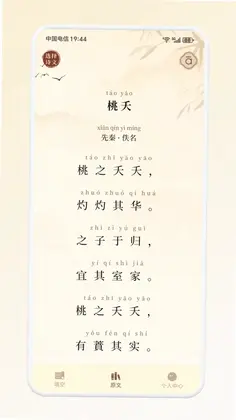 中国电信 19:44
选择
诗文
táo yāo
桃夭
xiān qín yì míng
先秦·佚名
táo zhī yāo yāo
桃之夭夭，
zhuó zhuó qí huá
灼灼其华。
zhī zǐ yú guī
之子于归，
yí qí shì jiā
宜其室家。
táo zhī yāo yāo
桃之夭夭，
yǒu fén qí shí
有蕡其实。
原文
个人中心